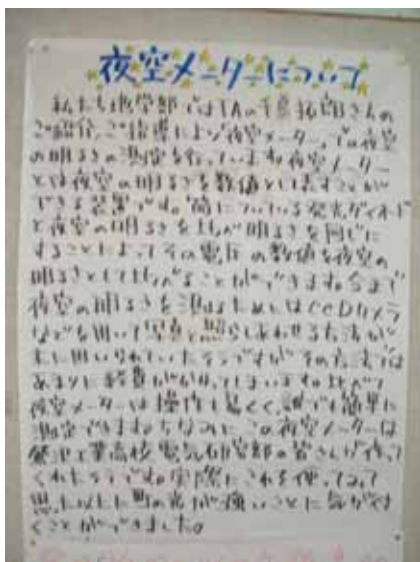 夜空メーターについて
私たち地学部ではTAの千葉拓朗さんの
ご紹介、ご指導により"夜空メーター"での夜空
の明るさの測定を行っています。夜空メーター
とは夜空の明るさを数値として表すことが
できる装置です。筒についている発光ダイオード
と夜空の明るさを比べ明るさを同じに
することによってその電圧の数値を夜空の
明るさとして比べることができます。今まで
夜空の明るさを測るためにはCCDカメラ
などを用いて写真と照らしあわせる方法が
主に用いられていたそうですがその方法では
あまりに経費がかかってしまいます。比べて
夜空メーターは操作も易しく、誰でも簡単に
測定できます。ちなみにこの夜空メーターは
工業高校電気研究部の皆さんが作って
くれたそうです。実際にこれを使ってみて
思った以上に町の光が強いことに気が付
くことができました。